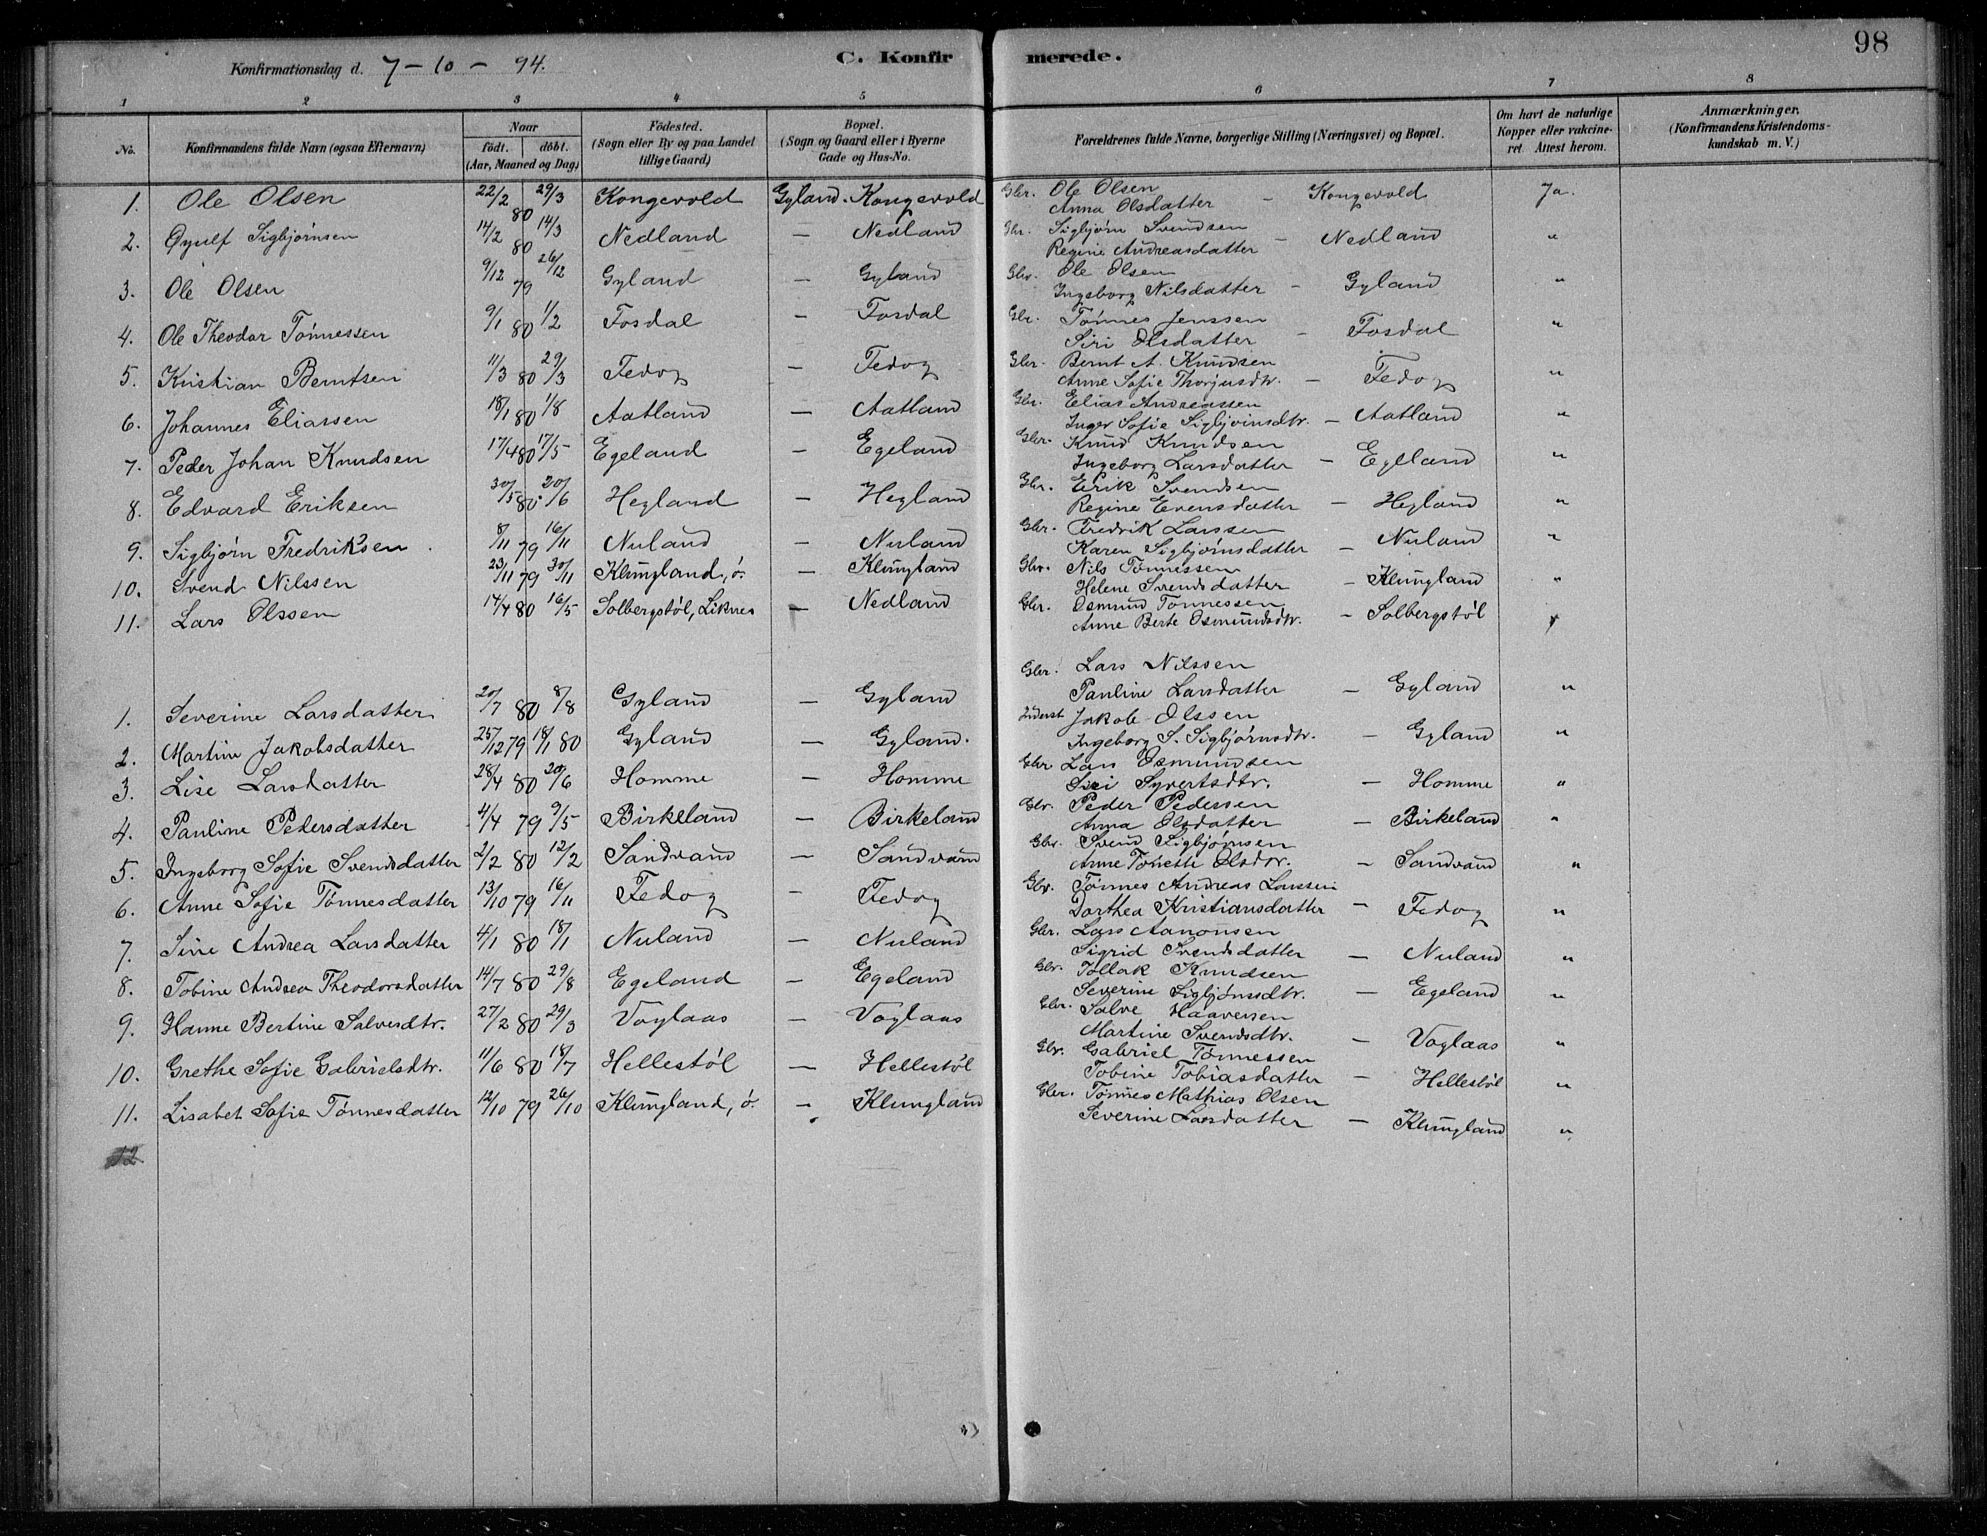 98
Konfirmationsdag d. 7-10-94.
C. Konfirmerede.
1 2 3 4 5 6 7 8
No.
Konfirmandens fulde Navn (ogsaa Efternavn)
Naar
födt. döbt.
(Aar, Maaned og Dag)
Födested.
(Sogn eller By og paa Landet
tillige Gaard)
Bopæl.
(Sogn og Gaard eller i Byerne
Gade og Hus-No.
Forældrenes fulde Navne, borgerlige Stilling (Næringsvei) og Bopæl.
Om havt de naturlige
Kopper eller vakcineret. Attest herom.
Anmærkninger.
(Konfirmandens Kristendomskundskab m. V.)
1. Ole Olsen 22/2 80 29/3 Kongevold Gyland - Kongevold Gbr. Ole Olsen
Anna Olsdatter - Kongevold Ja.
2. Øyulf Sigbjørnsen 14/2 80 14/3 Nedland - Nedland Gbr. Sigbjørn Svendsen
Regine Andreasdatter - Nedland "
3. Ole Olsen 9/12 79 26/12 Gyland - Gyland Gbr. Ole Olsen
Ingeborg Nilsdatter - Gyland "
4. Ole Theodor Tønnessen 9/1 80 1/2 Fosdal - Fosdal Gbr. Tønnes Jenssen
Siri Olsdatter - Fosdal "
5. Kristian Berntsen 11/3 80 29/3 Fedog - Fedog Gbr. Bernt A. Knudsen
Anne Sofie Thorjusdtr. - Fedog "
6. Johannes Eliassen 18/1 80 1/8 Aatland - Aatland Gbr. Elias Andreassen
Inger Sofie Sigbjørnsdtr. - Aatland "
7. Peder Johan Knudsen 17/4 80 17/5 Egeland - Egeland Gbr. Knud Knudsen
Ingeborg Larsdatter - Egeland "
8. Edvard Eriksen 30/5 80 20/6 Hegland - Hegland Gbr. Erik Svendsen
Regine Evensdatter - Hegland "
9. Sigbjørn Fredriksen 8/11 79 16/11 Nuland - Nuland Gbr. Fredrik Larssen
Karen Sigbjørnsdatter - Nuland "
10. Svend Nilssen 23/11 79 30/11 Klungland, ø. - Klungland Gbr. Nils Tønnessen
Helene Svendsdatter - Klungland "
11. Lars Olssen 14/4 80 16/5 Solbergstøl, Liknes - Nedland Gbr. Osmund Tønnessen
Anne Berte Osmundsdtr. - Solbergstøl "
1. Severine Larsdatter 20/7 80 8/8 Gyland - Gyland Gbr. Lars Nilssen
Pauline Larsdatter - Gyland "
2. Martine Jakobsdatter 25/12 79 18/1 80 Gyland - Gyland. Inderst Jakob Olssen
Ingeborg S. Sigbjørnsdtr. - Gyland "
3. Lise Larsdatter 28/4 80 20/6 Homme - Homme Gbr Lars Osmundsen
Siri Syvertsdtr. - Homme "
4. Pauline Pedersdatter 4/4 79 9/5 Birkeland - Birkeland Gbr. Peder Pedersen
Anna Olsdatter - Birkeland "
5. Ingeborg Sofie Svendsdatter 2/2 80 12/2 Sandvand - Sandvand Gbr. Svend Sigbjørnsen
Anne Tonette Olsdtr. - Sandvand "
6. Anne Sofie Tønnesdatter 13/10 79 16/11 Fedog - Fedog Gbr. Tønnes Andreas Larssen
Dorthea Kristiansdatter - Fedog "
7. Sine Andrea Larsdatter 4/1 80 18/1 Nuland - Nuland Gbr. Lars Aanonsen
Sigrid Svendsdatter - Nuland "
8. Tobine Andrea Theodorsdatter 14/7 80 29/8 Egeland - Egeland Gbr. Tollak Knudsen
Severine Sigbjørnsdtr. - Egeland "
9. Hanne Bertine Salvesdtr. 27/2 80 29/3 Voglaas - Voglaas Gbr. Salve Haaversen
Martine Svendsdtr. - Voglaas "
10. Grethe Sofie Gabrielsdtr. 11/6 80 18/7 Hellestøl - Hellestøl Gbr. Gabriel Tønnessen
Tobine Tobiasdatter - Hellestøl "
11. Lisabet Sofie Tønnesdatter 12/10 79 26/10 Klungland, ø. - Klungland Gbr. Tønnes Mathias Olsen
Severine Larsdatter - Klungland "
12.